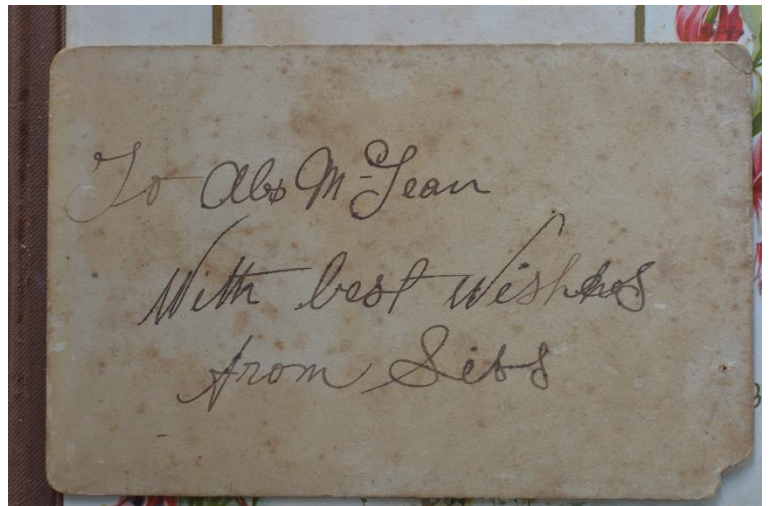 To Abs Mc Jean
With best wishes
from Sibs